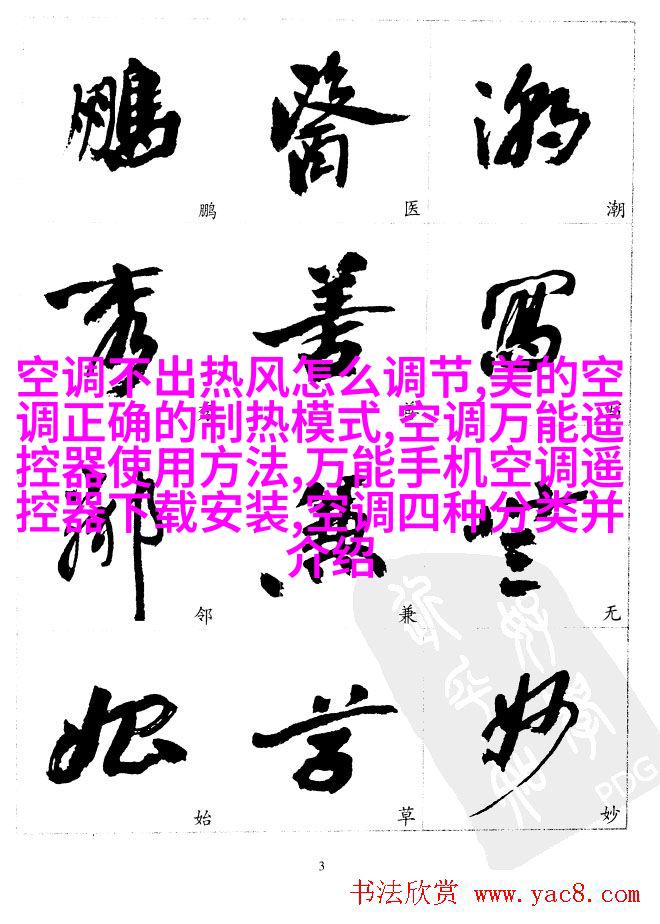 鹏 医 潮
空调不出热风怎么调节,美的空
调正确的制热模式,空调万能遥
控器使用方法,万能手机空调遥
控器下载安装,空调四种分类并
介绍
邻 兼 无
始 草 妙
3
PDG
书法欣赏 www.yac8.com